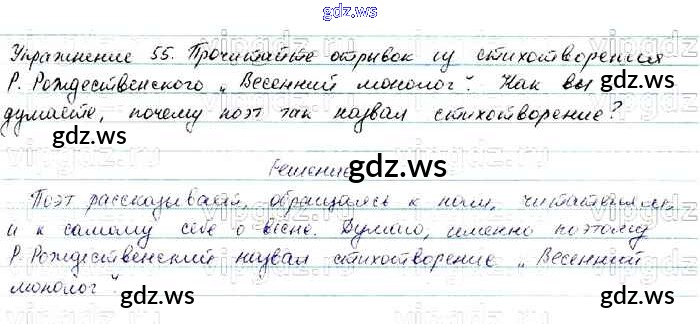 gdz.ws
Упражнение 55. Прочитайте отрывок из стихотворения
Р. Рождественского „Весенний монолог". Как вы
gdz.ws
думаете, почему поэт так назвал стихотворение?
gdz.ws
vipgdz.ws
Решение
gdz.ws
Поэт рассказывает, обращаясь к нам, читателям,
и к самому себе о весне. Думаю, именно поэтому
gdz.ws
Р. Рождественский назвал стихотворение „Весенний
монолог".
gdz.ws
gdz.ws